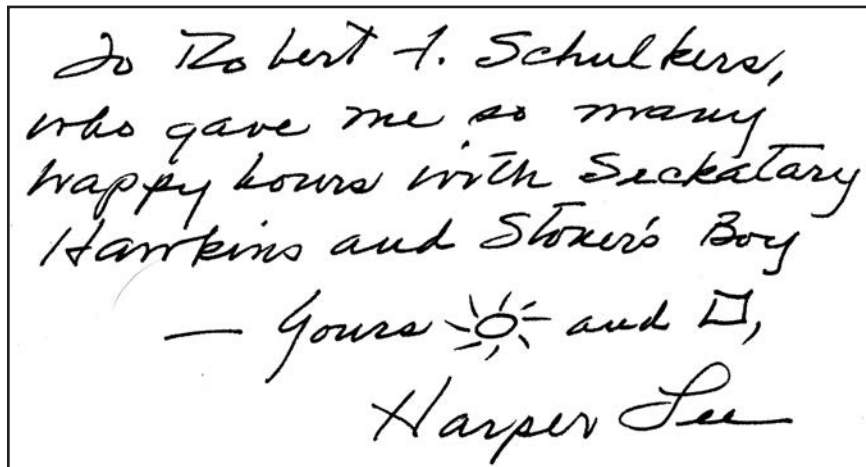 To Robert F. Schulkers,
who gave me so many
happy hours with Seckatary
Hawkins and Stoner's Boy
— Yours and ,
Harper Lee